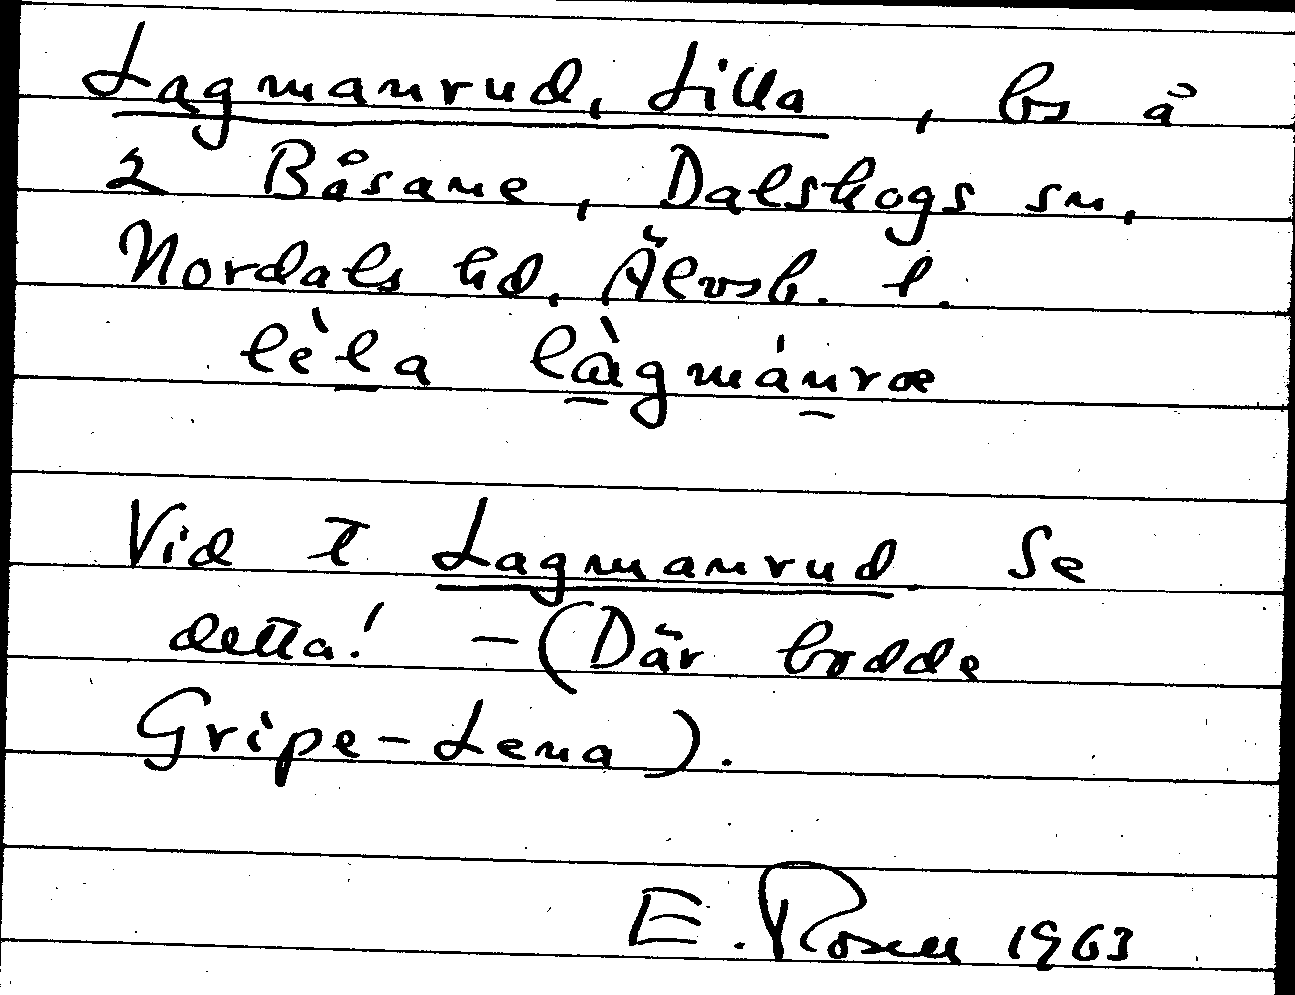 Lagmanrud, Lilla, bs å
2 Båsane, Dalskogs sn,
Nordals hd, Älvsb. l.
lè̀la làgmánræ
Vid t Lagmanrud. Se
detta! - (Där bodde
Gripe-Lena).
E. Rosell 1963